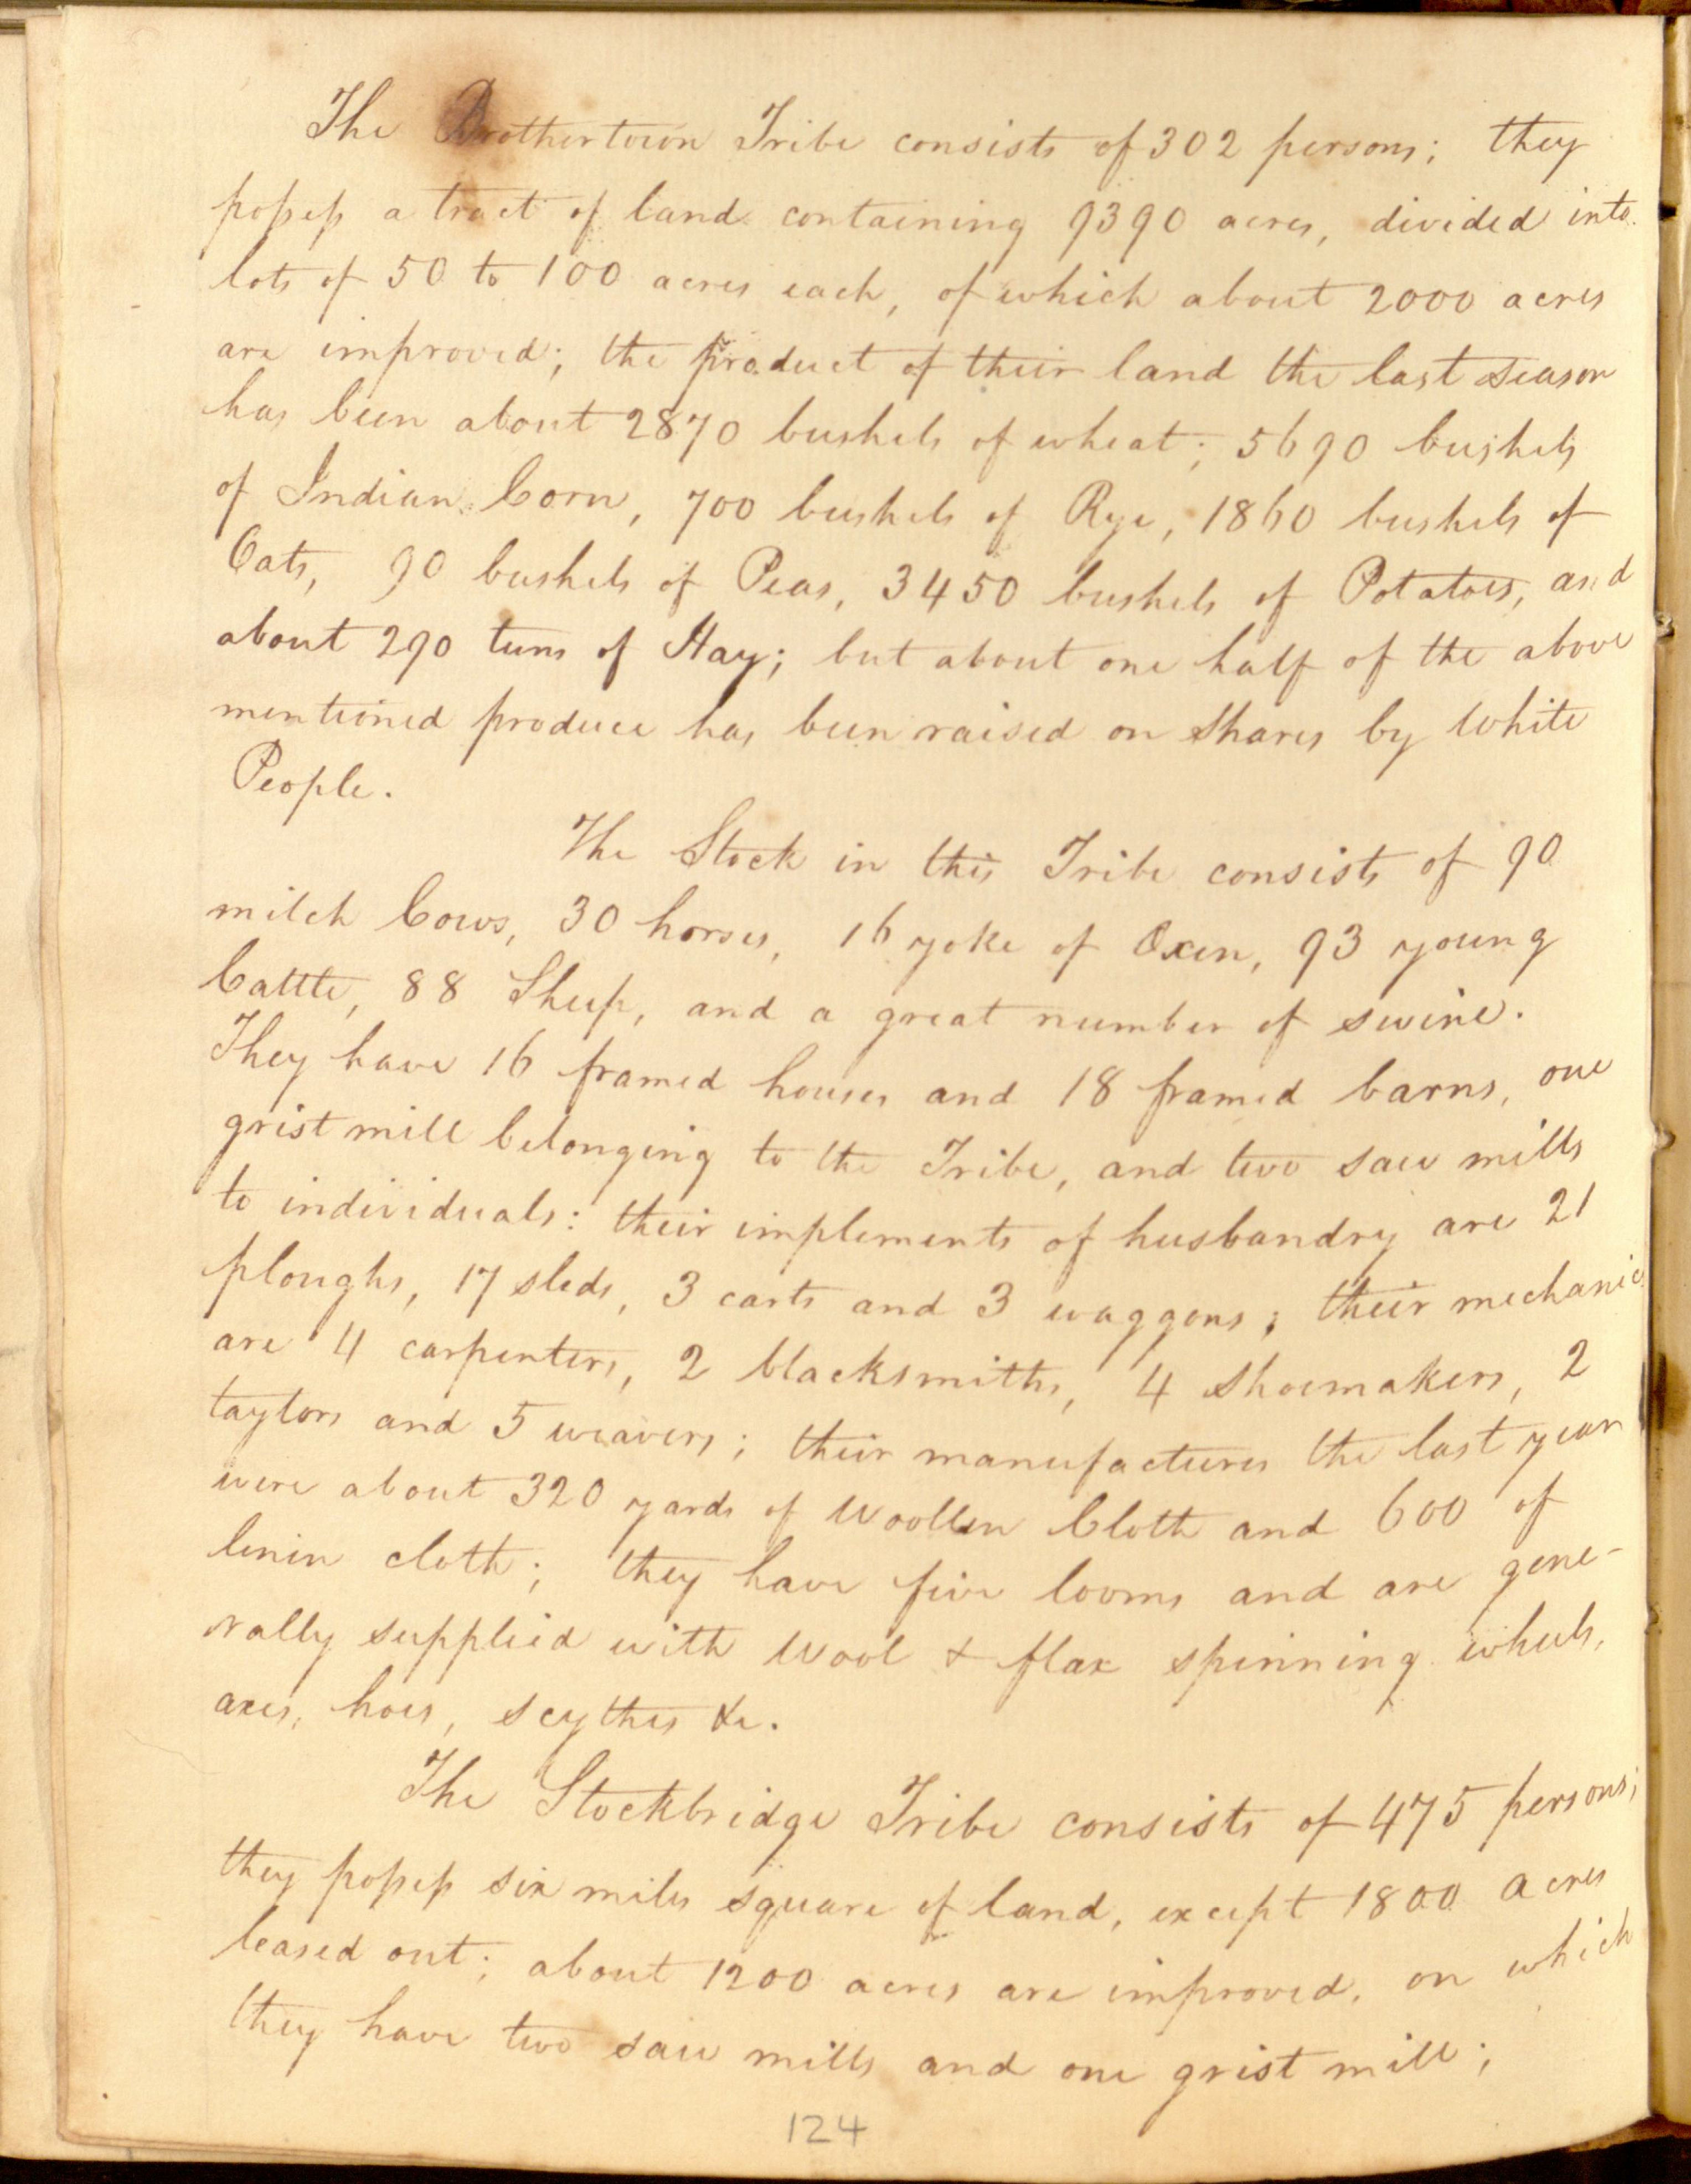 The Brothertown Tribe consists of 302 persons; they
possess a tract of land containing 9390 acres, divided into
lots of 50 to 100 acres each, of which about 2000 acres
are improved; the product of their land the last season
has been about 2870 bushels of wheat; 5690 bushels
of Indian Corn, 700 bushels of Rye, 1860 bushels of
Oats, 90 bushels of Peas, 3450 bushels of Potatoes, and
about 290 tuns of Hay; but about one half of the above
mentioned produce has been raised on shares by White
People.
The Stock in this Tribe consists of 90
milch Cows, 30 horses, 16 yoke of Oxen, 93 young
Cattle, 88 Sheep, and a great number of swine.
They have 16 framed houses and 18 framed barns, one
grist mill belonging to the Tribe, and two saw mills
to individuals: their implements of husbandry are 21
ploughs, 17 sleds, 3 carts and 3 waggons; their mechanics
are 4 carpenters, 2 blacksmiths, 4 shoemakers, 2
taylors and 5 weavers; their manufactures the last year
were about 320 yards of Woollen Cloth and 600 of
linin cloth; they have five looms and are gene-
rally supplied with Wool & flax spinning wheels,
axes, hoes, scythes &c.
The Stockbridge Tribe consists of 475 persons;
they possess six miles square of land, except 1800 acres
leased out; about 1200 acres are improved, on which
they have two saw mills and one grist mill;
124